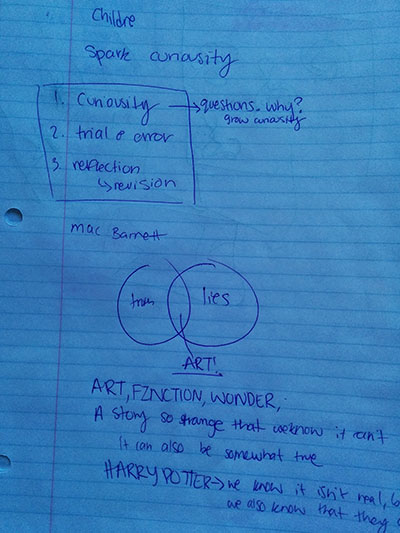 Childre
Spark curiosity
1. Curiousity → questions. why?
grow curiosity
2. trial & error
3. reflection
↳ revision
mac Barnett
lies
ART!
ART, FINCTION, WONDER,
A story so strange that we know it can't
It can also be somewhat true
HARRY POTTER → we know it isn't real, b
we also know that they